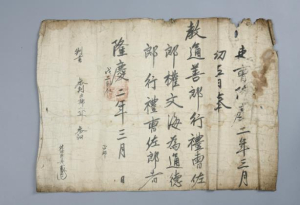 吏曹隆慶二年三月
初五日奉
敎通善郎行禮曹佐
郎權文海爲通德
郎行禮曹佐郎者
隆慶二年三月 日
判書